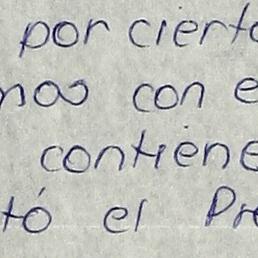 por cierto
mos con e
contiene
tó el Pre